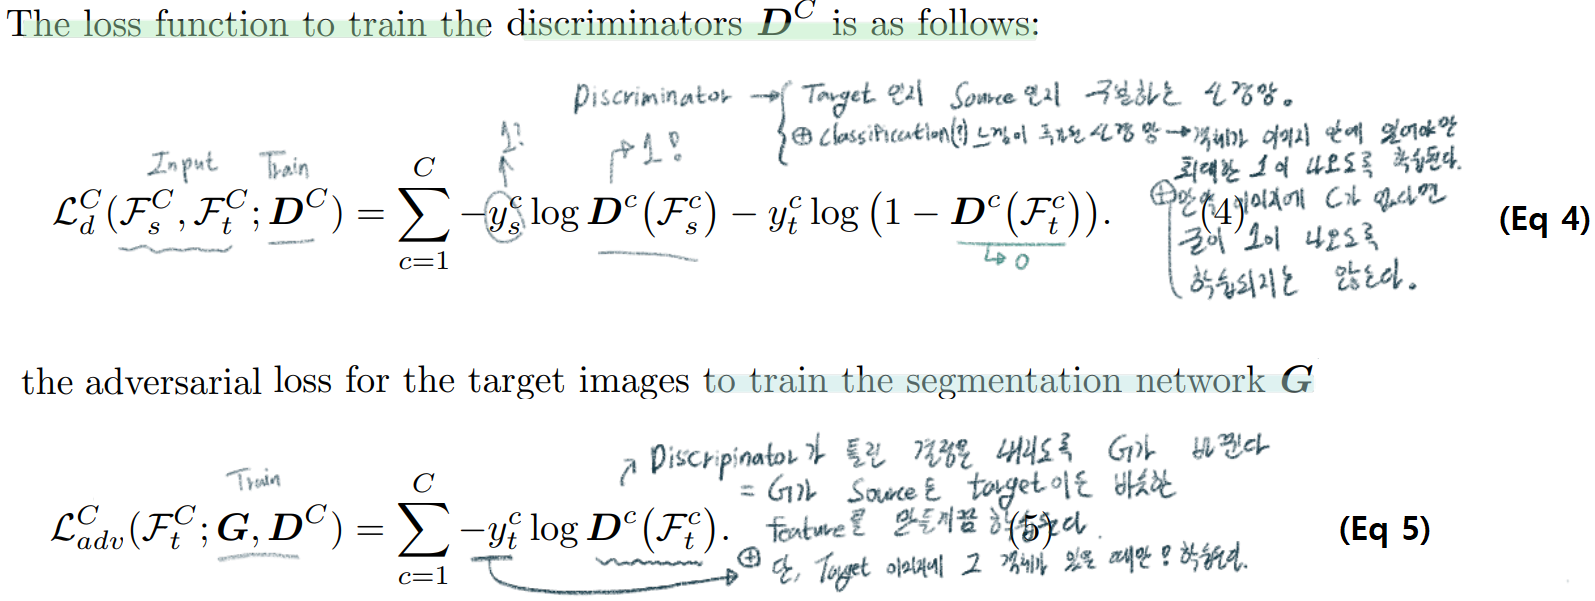 The loss function to train the discriminators D^C is as follows:
Discriminator → Target 인지 Source 인지 구별하는 신경망.
⊕ Classification(?) 느낌이 추가된 신경망 → 객체가 이미지 안에 있어야만
최대한 1이 나오도록 학습된다.
⊕ 만약 이미지에 C가 없다면
굳이 1이 나오도록
학습되지는 않는다.
1?
→ 1?
Input Train
L_d^C(F_s^C, F_t^C; D^C) = ∑_{c=1}^{C} −y_s^c log D^c(F_s^c) − y_t^c log (1 − D^c(F_t^c)). (4)
(Eq 4)
↳ 0
the adversarial loss for the target images to train the segmentation network G
Discripinator가 틀린 결정을 내리도록 G가 바뀐다
= G가 Source든 target이든 비슷한
feature를 만들게끔 학습된다.
Train
L_adv^C(F_t^C; G, D^C) = ∑_{c=1}^{C} −y_t^c log D^c(F_t^c). (5)
(Eq 5)
⊕ 단, Target 이미지에 그 객체가 있을 때만! 학습된다.